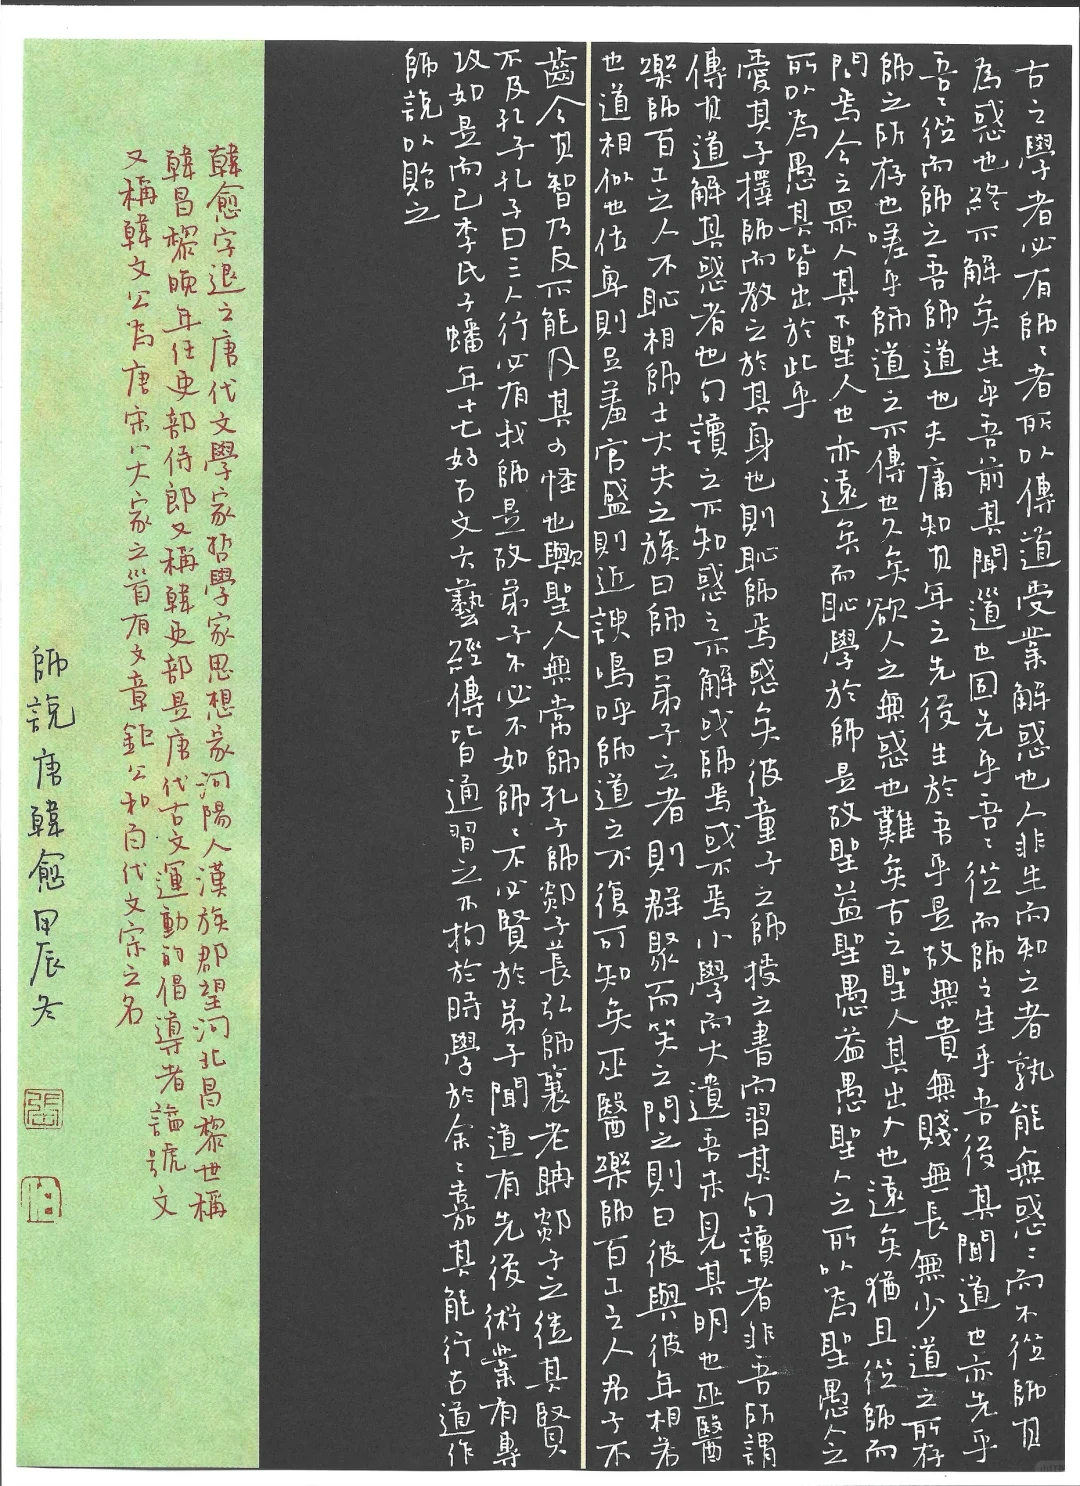 古之學者必有師〻者所以傳道受業解惑也人非生而知之者孰能無惑〻而不從師其
為惑也終不解矣生乎吾前其聞道也固先乎吾〻從而師之生乎吾後其聞道也亦先乎
吾〻從而師之吾師道也夫庸知其年之先後生於吾乎是故無貴無賤無長無少道之所存
師之所存也嗟乎師道之不傳也久矣欲人之無惑也難矣古之聖人其出人也遠矣猶且從師而
問焉今之眾人其下聖人也亦遠矣而恥學於師是故聖益聖愚益愚聖人之所以為聖愚人之
所以為愚其皆出於此乎
愛其子擇師而教之於其身也則恥師焉惑矣彼童子之師授之書而習其句讀者非吾所謂
傳其道解其惑者也句讀之不知惑之不解或師焉或不焉小學而大遺吾未見其明也巫醫
樂師百工之人不恥相師士大夫之族曰師曰弟子云者則群聚而笑之問之則曰彼與彼年相若
也道相似也位卑則足羞官盛則近諛嗚呼師道之不復可知矣巫醫樂師百工之人君子不
齒今其智乃反不能及其可怪也歟聖人無常師孔子師郯子萇弘師襄老聃郯子之徒其賢
不及孔子孔子曰三人行必有我師是故弟子不必不如師〻不必賢於弟子聞道有先後術業有專
攻如是而已李氏子蟠年十七好古文六藝經傳皆通習之不拘於時學於余〻嘉其能行古道作
師說以貽之
韓愈字退之唐代文學家哲學家思想家河陽人漢族郡望河北昌黎世稱
韓昌黎晚年任吏部侍郎又稱韓吏部是唐代古文運動的倡導者謚號文
又稱韓文公為唐宋八大家之首有文章鉅公和百代文宗之名
師說唐韓愈甲辰冬
張